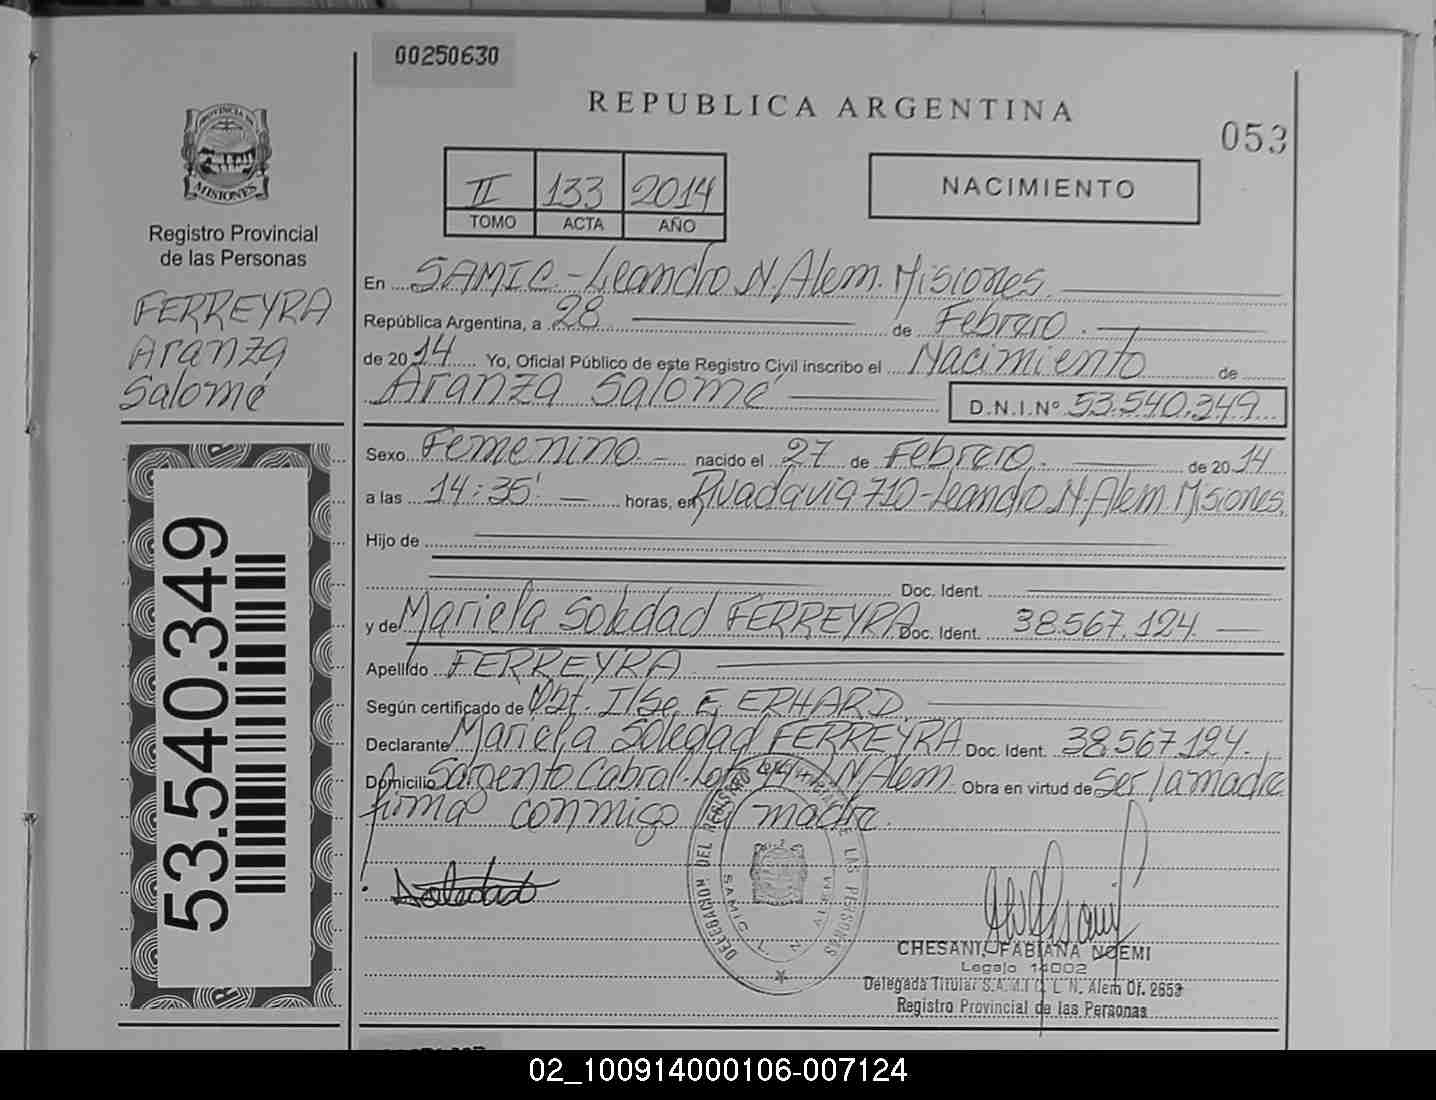 00250630
REPUBLICA ARGENTINA
053
PROVINCIA DE
MISIONES
Registro Provincial
de las Personas
FERREYRA
Aranza
Salomé
II 133 2014
TOMO ACTA AÑO
NACIMIENTO
En SAMIC - Leandro N. Alem. Misiones.
República Argentina, a 28 de Febrero.
de 2014 Yo, Oficial Público de este Registro Civil inscribo el Nacimiento de
Aranza Salomé D.N.I.Nº 53.540.349
Sexo Femenino - nacido el 27 de Febrero. de 2014
a las 14:35' horas, en Rivadavia 710 - Leandro N. Alem. Misiones.
Hijo de
Doc. Ident.
y de Mariela Soledad FERREYRA Doc. Ident. 38.567.124
Apellido FERREYRA
Según certificado de Obt. Ilse E. ERHARD.
Declarante Mariela Soledad FERREYRA Doc. Ident. 38.567.124.
Domicilio Sargento Cabral L. N. Alem Obra en virtud de Ser la madre
firma conmigo la madre.
53.540.349
Soledad
DELEGACION DEL REGISTRO DE LAS PERSONAS
SAMIC L. N. ALEM
CHESANI, FABIANA NOEMI
Legajo 14002
Delegada Titular S.A.M.I.C. L. N. Alem Of. 2653
Registro Provincial de las Personas
02_100914000106-007124